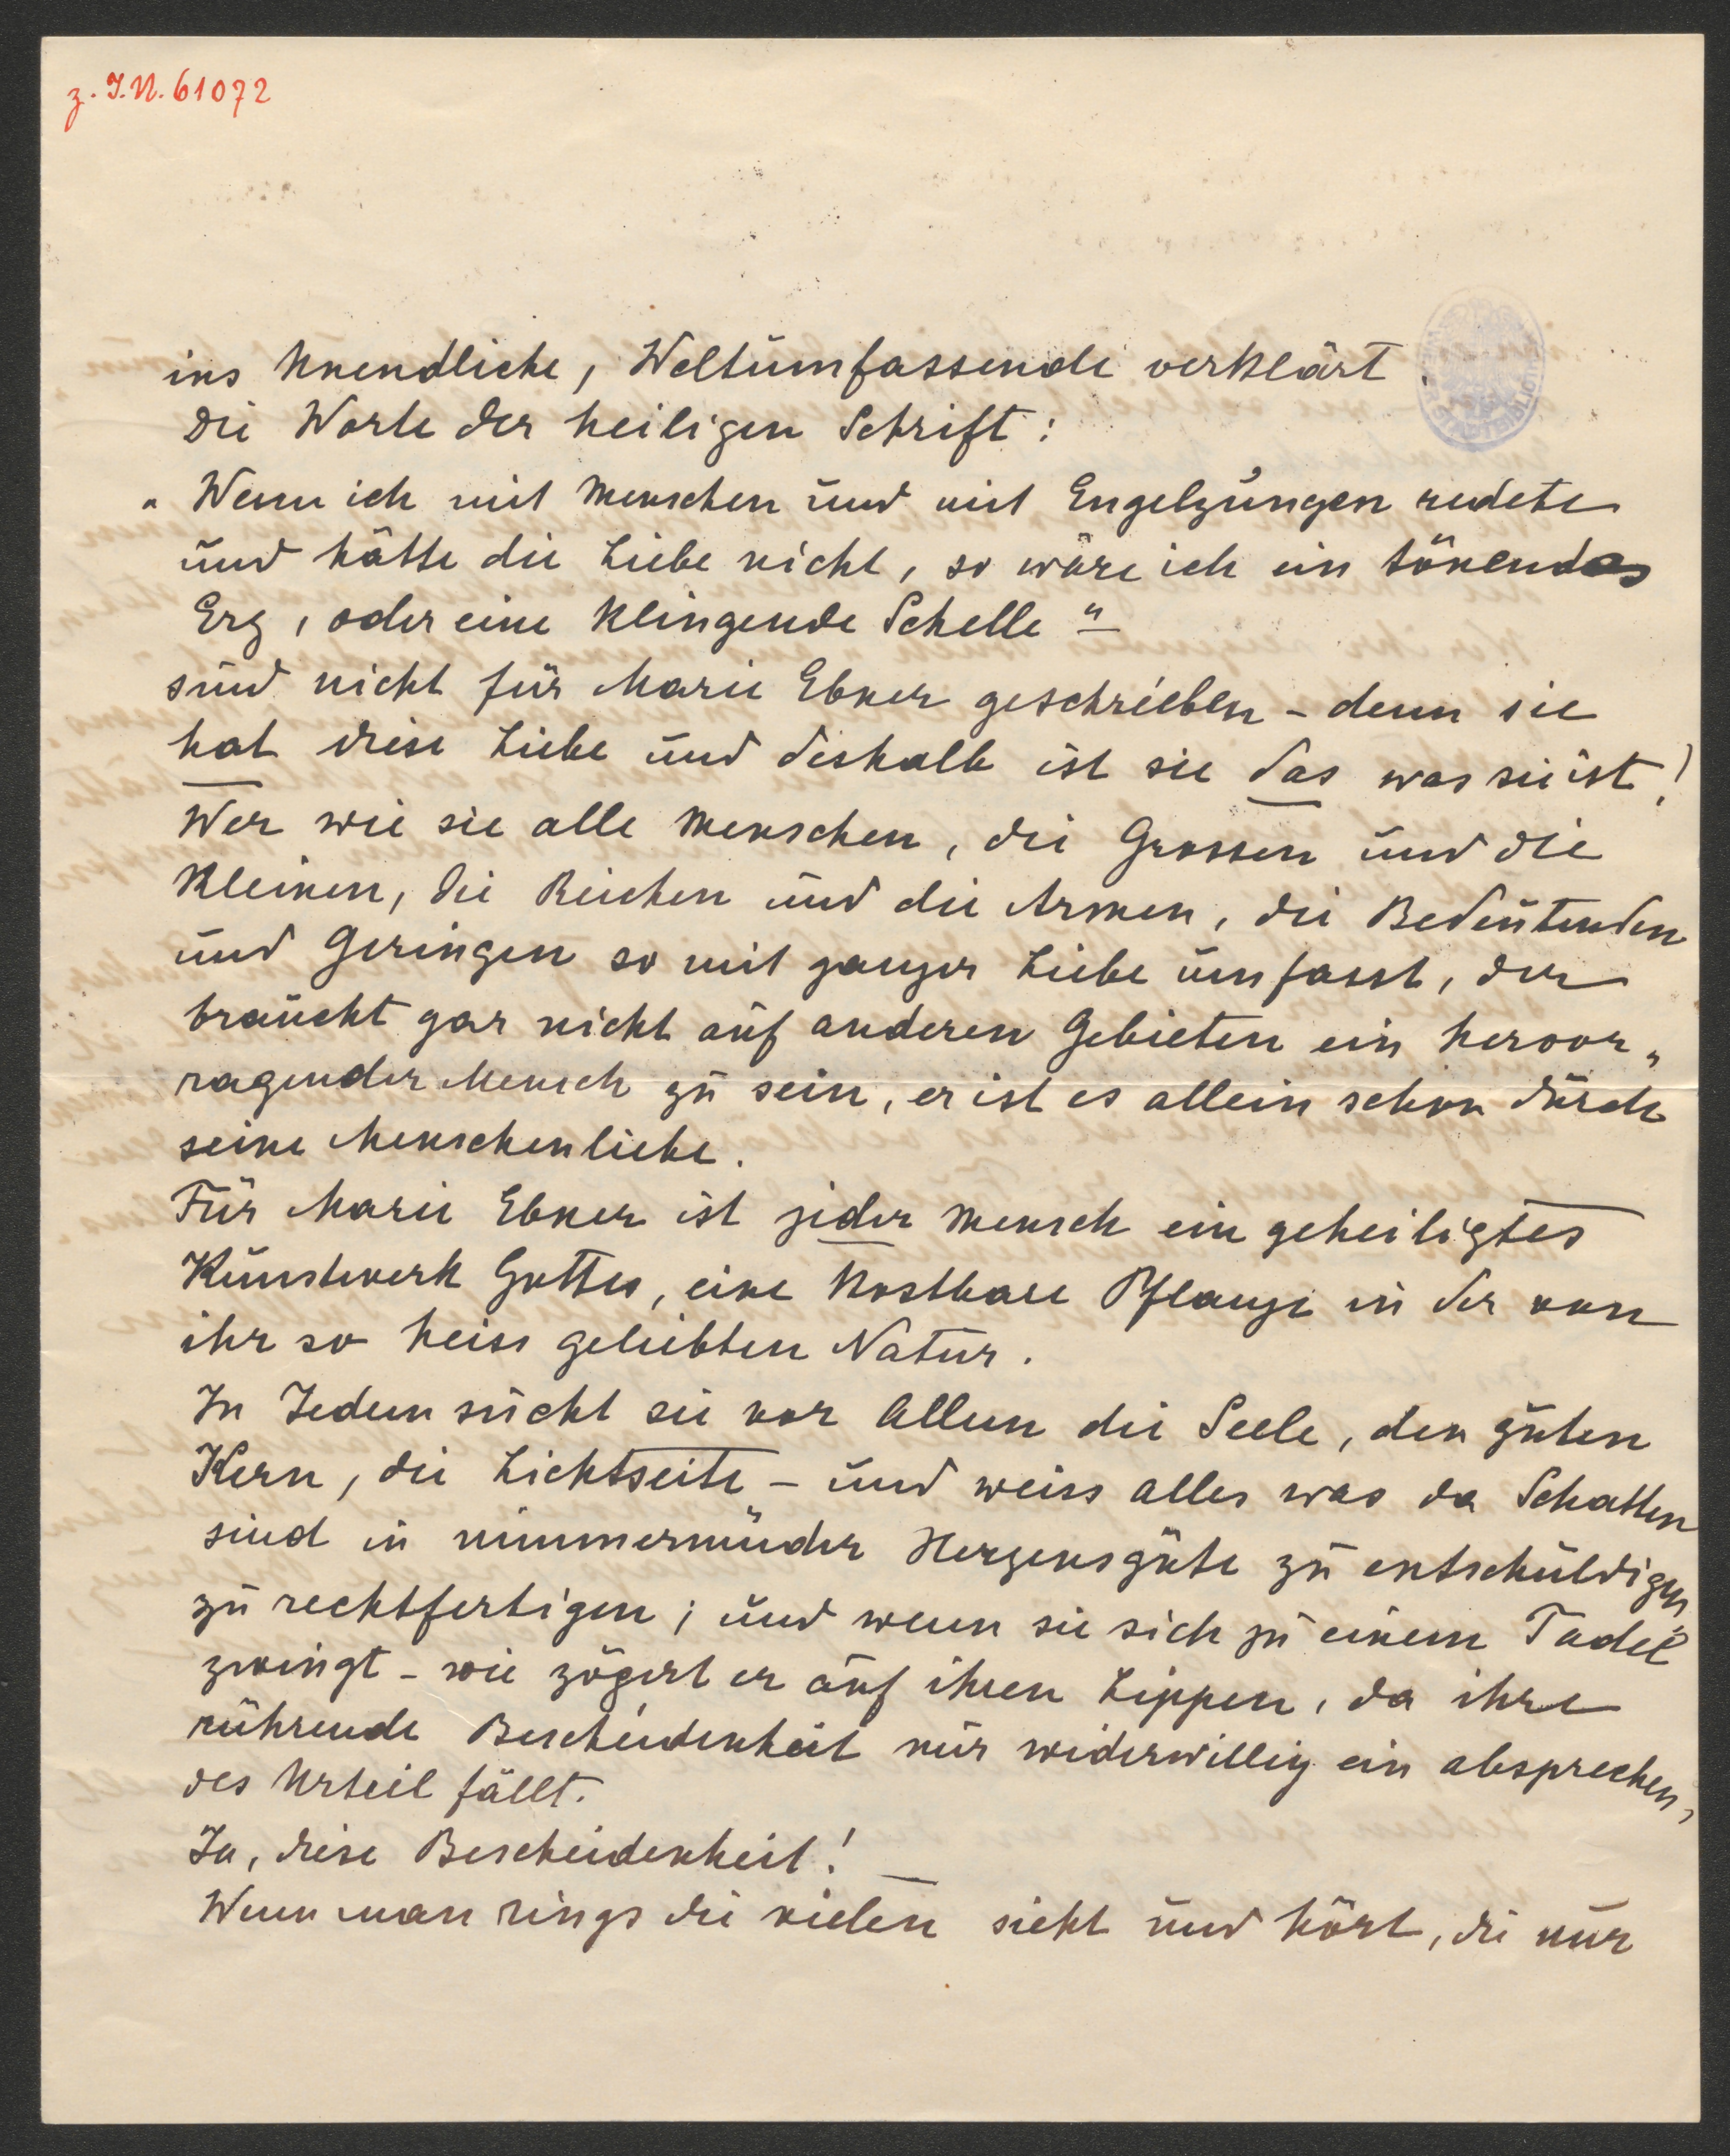 z. I.N. 61072
ins Unendliche, Weltumfassende verklärt.
Die Worte der heiligen Schrift:
„Wenn ich mit Menschen und mit Engelzungen redete
und hätte die Liebe nicht, so wäre ich ein tönendes
Erz, oder eine klingende Schelle"
sind nicht für Marie Ebner geschrieben – denn sie
hat diese Liebe und deshalb ist sie das was sie ist!
Wer wie sie alle Menschen, die Grossen und die
Kleinen, die Reichen und die Armen, die Bedeutenden
und Geringen so mit ganzer Liebe umfasst, der
braucht gar nicht auf anderen Gebieten ein hervor„
ragender Mensch zu sein, er ist es allein schon durch
seine Menschenliebe.
Für Marie Ebner ist jeder Mensch ein geheiligtes
Kunstwerk Gottes, eine kostbare Pflanze in der von
ihr so heiss geliebten Natur.
In Jedem sucht sie vor Allem die Seele, den guten
Kern, die Lichtseite – und weiss alles was da Schatten
sind in nimmermüder Herzensgüte zu entschuldigen,
zu rechtfertigen; und wenn sie sich zu einem Tadel
zwingt – wie zögert er auf ihren Lippen, da ihre
rührende Bescheidenheit nur widerwillig ein absprechen„
des Urteil fällt.
Ja, diese Bescheidenheit!
Wenn man rings die vielen sieht und hört, die nur